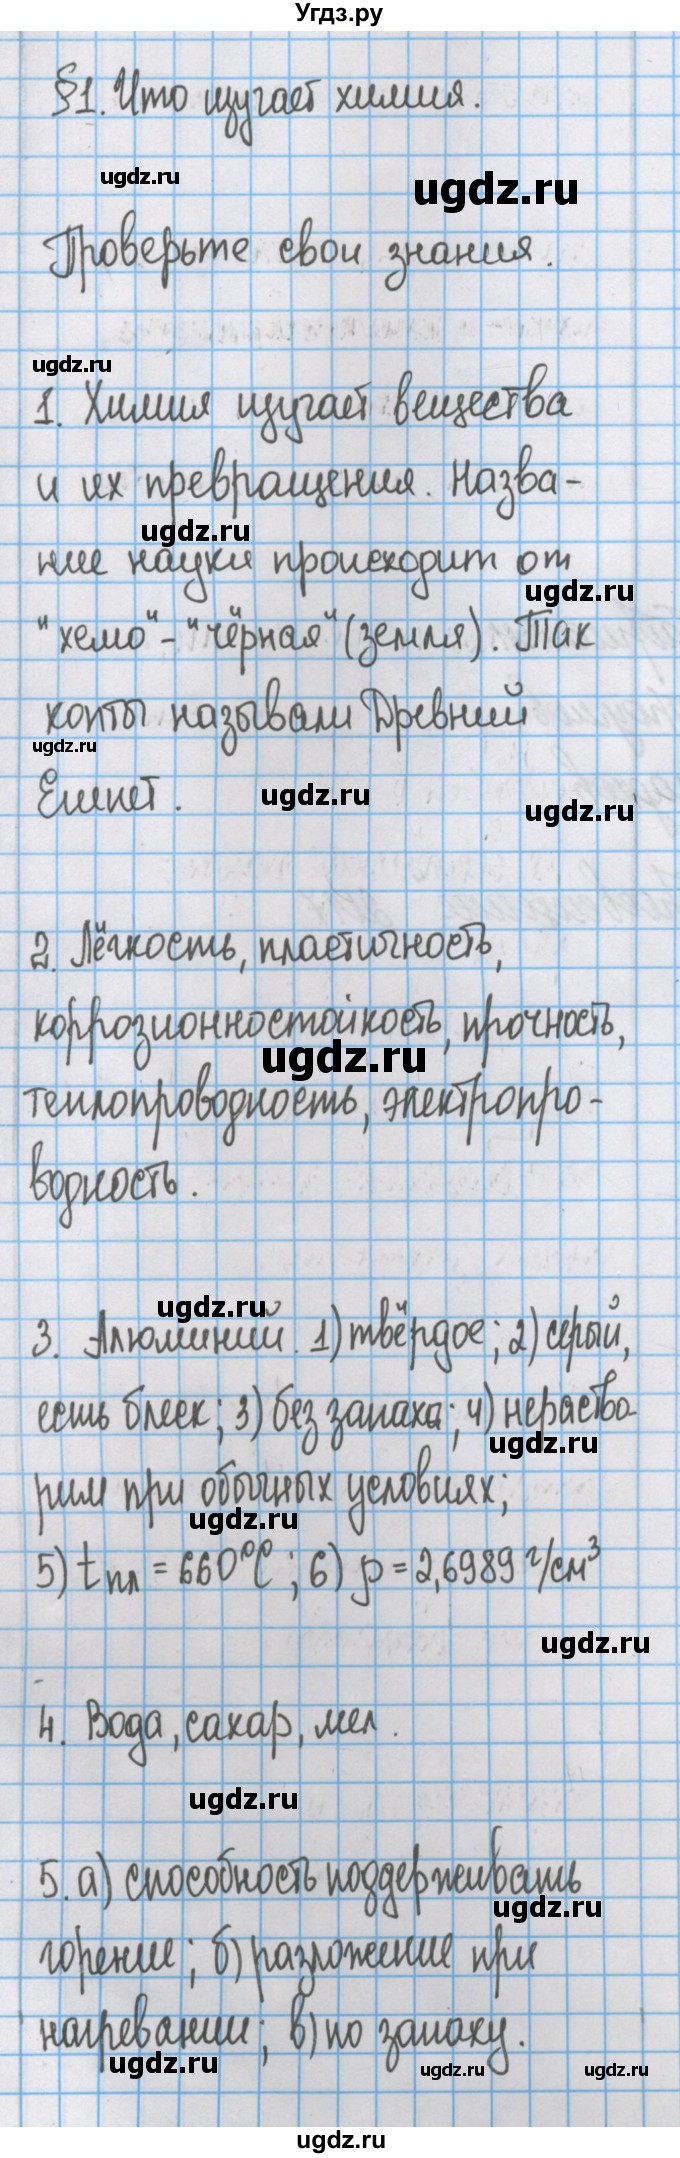 Угдз.ру
§1. Что изучает химия.
ugdz.ru
ugdz.ru
Проверьте свои знания.
ugdz.ru
1. Химия изучает вещества
и их превращения. Назва-
ugdz.ru
ние науки происходит от
ugdz.ru
"хемо" - "чёрная" (земля). Так
копты называли Древний
ugdz.ru
Египет.
ugdz.ru
ugdz.ru
2. Лёгкость, пластичность,
коррозионностойкость, прочность,
ugdz.ru
теплопроводность, электропро-
водность.
ugdz.ru
3. Алюминий. 1) твёрдое; 2) серый,
есть блеск; 3) без запаха; 4) нераство-
ugdz.ru
рим при обычных условиях;
ugdz.ru
5) tпл = 660°С; 6) ρ = 2,6989 г/см³
ugdz.ru
4. Вода, сахар, мел.
ugdz.ru
5. а) способность поддерживать
ugdz.ru
горение; б) разложение при
нагревании; в) по запаху.
ugdz.ru
ugdz.ru
ugdz.ru
ugdz.ru